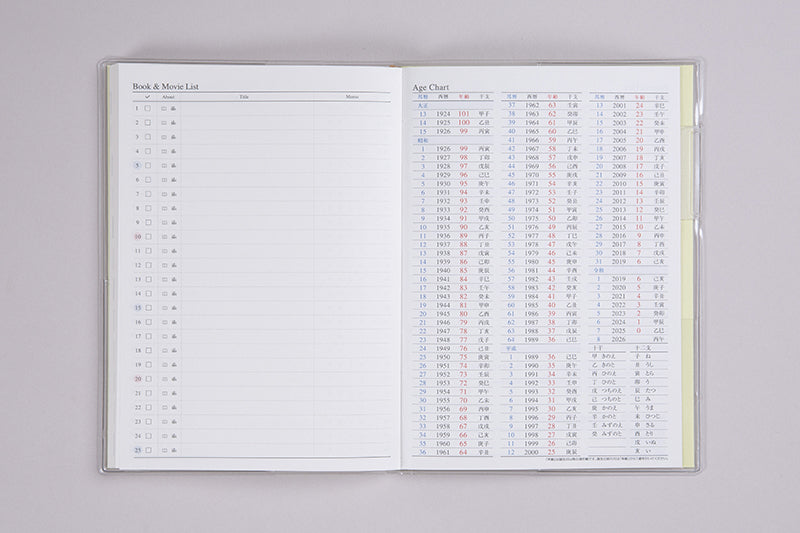 Book & Movie List
✓ About Title Memo
1
2
3
4
5
6
7
8
9
10
11
12
13
14
15
16
17
18
19
20
21
22
23
24
25
Age Chart
西暦 年齢 干支
大正
13 1924 101 甲子
14 1925 100 乙丑
15 1926 99 丙寅
昭和
1 1926 99 丙寅
2 1927 98 丁卯
3 1928 97 戊辰
4 1929 96 己巳
5 1930 95 庚午
6 1931 94 辛未
7 1932 93 壬申
8 1933 92 癸酉
9 1934 91 甲戌
10 1935 90 乙亥
11 1936 89 丙子
12 1937 88 丁丑
13 1938 87 戊寅
14 1939 86 己卯
15 1940 85 庚辰
16 1941 84 辛巳
17 1942 83 壬午
18 1943 82 癸未
19 1944 81 甲申
20 1945 80 乙酉
21 1946 79 丙戌
22 1947 78 丁亥
23 1948 77 戊子
24 1949 76 己丑
25 1950 75 庚寅
26 1951 74 辛卯
27 1952 73 壬辰
28 1953 72 癸巳
29 1954 71 甲午
30 1955 70 乙未
31 1956 69 丙申
32 1957 68 丁酉
33 1958 67 戊戌
34 1959 66 己亥
35 1960 65 庚子
36 1961 64 辛丑
西暦 年齢 干支
37 1962 63 壬寅
38 1963 62 癸卯
39 1964 61 甲辰
40 1965 60 乙巳
41 1966 59 丙午
42 1967 58 丁未
43 1968 57 戊申
44 1969 56 己酉
45 1970 55 庚戌
46 1971 54 辛亥
47 1972 53 壬子
48 1973 52 癸丑
49 1974 51 甲寅
50 1975 50 乙卯
51 1976 49 丙辰
52 1977 48 丁巳
53 1978 47 戊午
54 1979 46 己未
55 1980 45 庚申
56 1981 44 辛酉
57 1982 43 壬戌
58 1983 42 癸亥
59 1984 41 甲子
60 1985 40 乙丑
61 1986 39 丙寅
62 1987 38 丁卯
63 1988 37 戊辰
64 1989 36 己巳
平成
1 1989 36 己巳
2 1990 35 庚午
3 1991 34 辛未
4 1992 33 壬申
5 1993 32 癸酉
6 1994 31 甲戌
7 1995 30 乙亥
8 1996 29 丙子
9 1997 28 丁丑
10 1998 27 戊寅
11 1999 26 己卯
12 2000 25 庚辰
西暦 年齢 干支
13 2001 24 辛巳
14 2002 23 壬午
15 2003 22 癸未
16 2004 21 甲申
17 2005 20 乙酉
18 2006 19 丙戌
19 2007 18 丁亥
20 2008 17 戊子
21 2009 16 己丑
22 2010 15 庚寅
23 2011 14 辛卯
24 2012 13 壬辰
25 2013 12 癸巳
26 2014 11 甲午
27 2015 10 乙未
28 2016 9 丙申
29 2017 8 丁酉
30 2018 7 戊戌
31 2019 6 己亥
令和
1 2019 6 己亥
2 2020 5 庚子
3 2021 4 辛丑
4 2022 3 壬寅
5 2023 2 癸卯
6 2024 1 甲辰
7 2025 0 乙巳
8 2026 丙午
十干 十二支
甲 きのえ 子 ね
乙 きのと 丑 うし
丙 ひのえ 寅 とら
丁 ひのと 卯 う
戊 つちのえ 辰 たつ
己 つちのと 巳 み
庚 かのえ 午 うま
辛 かのと 未 ひつじ
壬 みずのえ 申 さる
癸 みずのと 酉 とり
戌 いぬ
亥 い